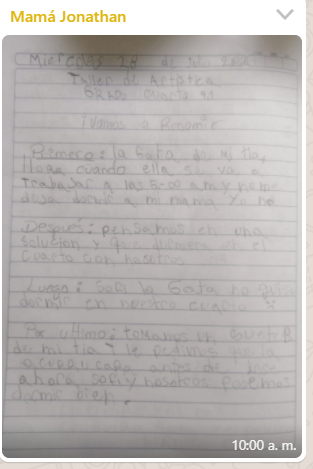 Mamá Jonathan
Miercoles 28 de
Taller de Artística
Grado cuarto
¡Vamos a
Primero: la Gata de mi tia,
llora cuando ella se va a
Trabajar a las 5:00 am y no me
deja dormir a mi mama yo no
Despues: pensamos en una
solucion y que durmiera en el
cuarto con nosotros
Luego: Sofi la Gata no quiso
dormir en nuestro cuarto
Por ultimo: tomamos un
de mi tia y le pedimos que la
antes de
ahora sofi y nosotros podemos
dormir bien.
10:00 a. m.